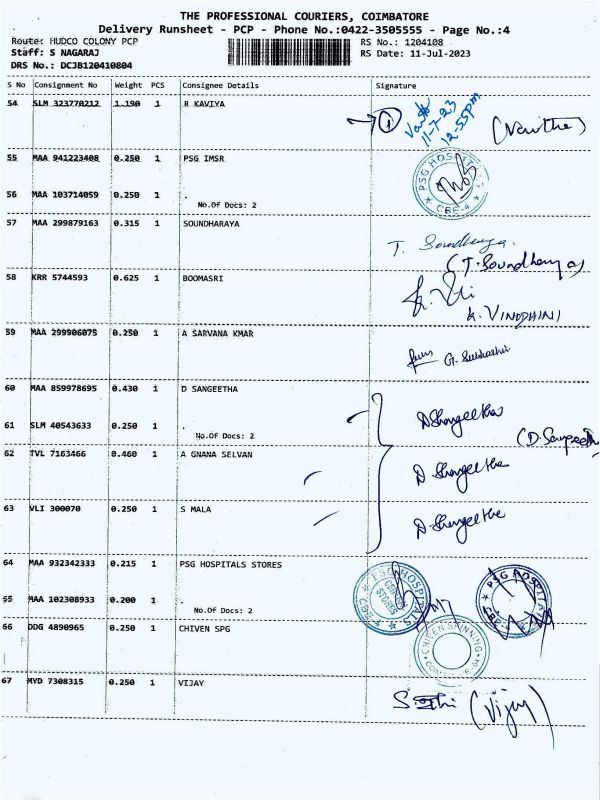 THE PROFESSIONAL COURIERS, COIMBATORE
Delivery Runsheet - PCP - Phone No.:0422-3505555 - Page No.:4
Route: HUDCO COLONY PCP RS No.: 1204108
Staff: S NAGARAJ RS Date: 11-Jul-2023
DRS No.: DCJB120410804
S No Consignment No Weight PCS Consignee Details Signature
54 SLM 323770212 1.190 1 R KAVIYA
1
11-7-23
12-55pm
55 MAA 941223408 0.250 1 PSG IMSR
PSG HOSPITALS CBE-4
56 MAA 103714059 0.250 1 .
No.Of Docs: 2
57 MAA 299879163 0.315 1 SOUNDHARAYA
T. Soundhanya
(T. Soundhanya)
58 KRR 5744593 0.625 1 BOOMASRI
K. VINODHINI
59 MAA 299906075 0.250 1 A SARVANA KMAR
G. Subhashi
60 MAA 859978695 0.430 1 D SANGEETHA
D Shangeetha
61 SLM 40543633 0.250 1 .
(D. Sangeeth
No.Of Docs: 2
62 TVL 7163466 0.460 1 A GNANA SELVAN
D. Shangeetha
63 VLI 300070 0.250 1 S MALA
D. Shangeetha
64 MAA 932342333 0.215 1 PSG HOSPITALS STORES
PSG HOSPITALS
PSG HOSPITALS
65 MAA 102308933 0.200 1 .
No.Of Docs: 2
66 DDG 4890965 0.250 1 CHIVEN SPG
CHIVEN SPINNING
67 MYD 7308315 0.250 1 VIJAY
(Vijay)